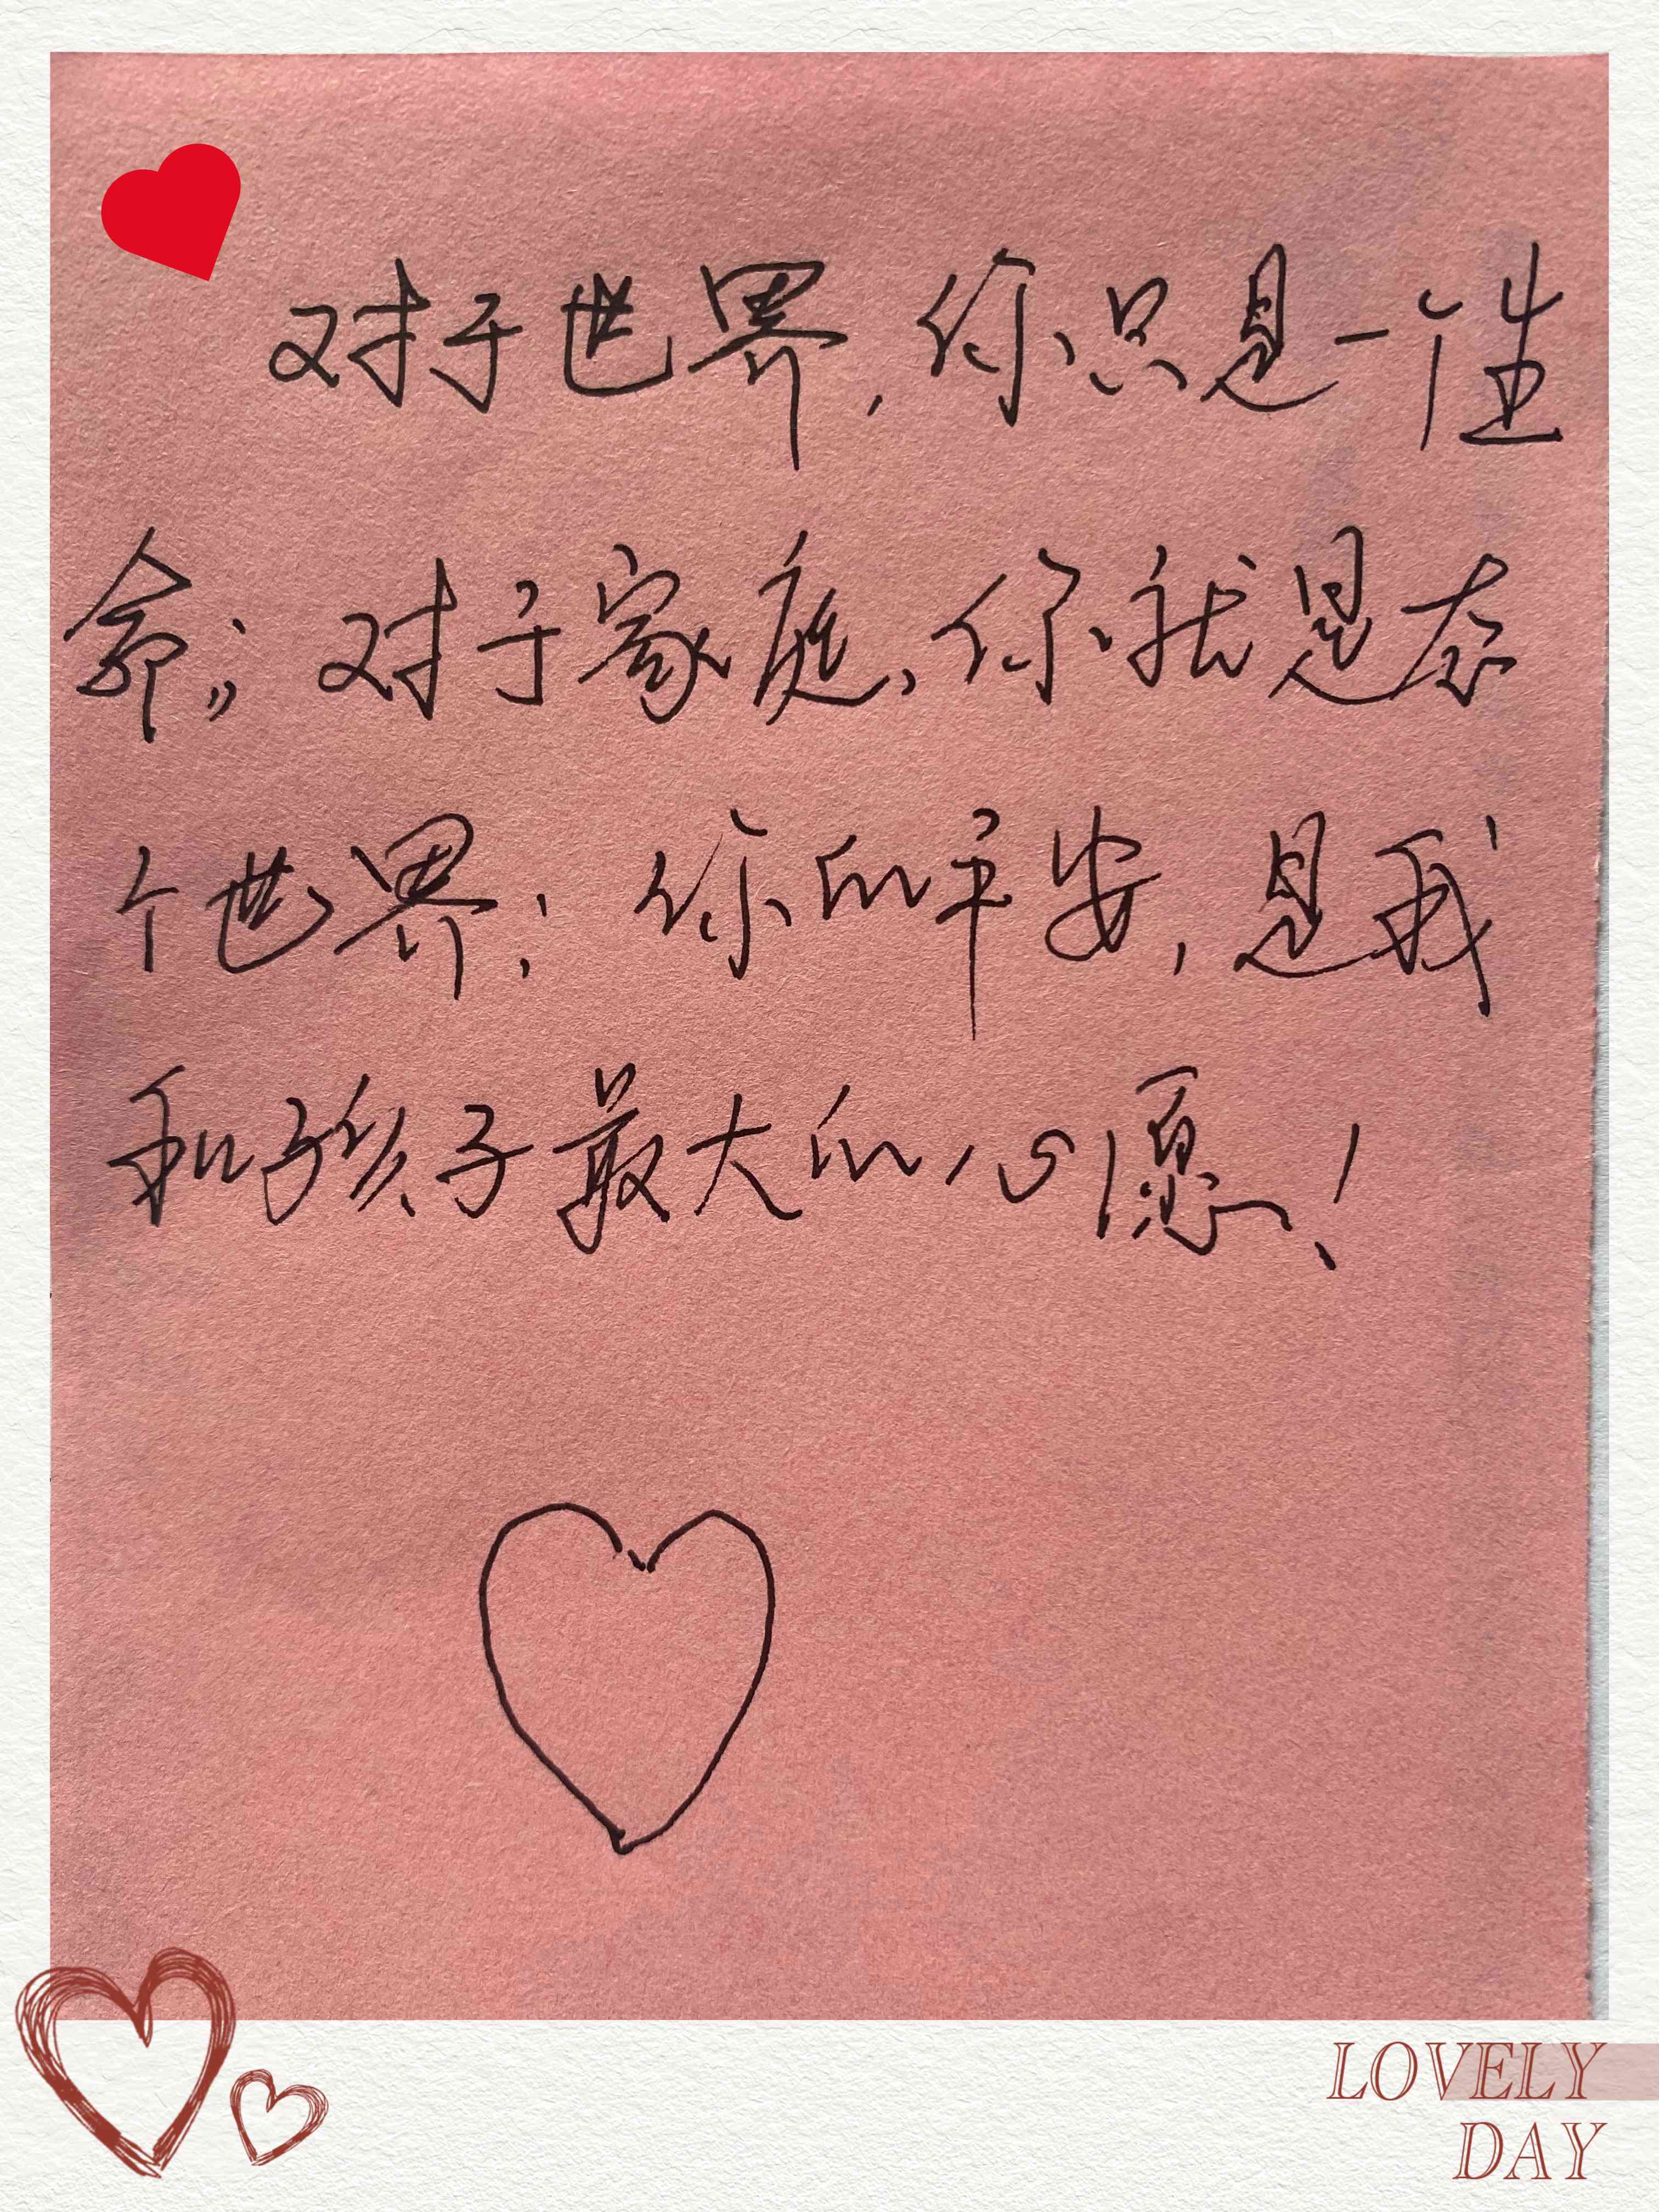 对于世界，你只是一个生
命；对于家庭，你就是整
个世界；你的平安，是我
和孩子最大的心愿！
LOVELY
DAY